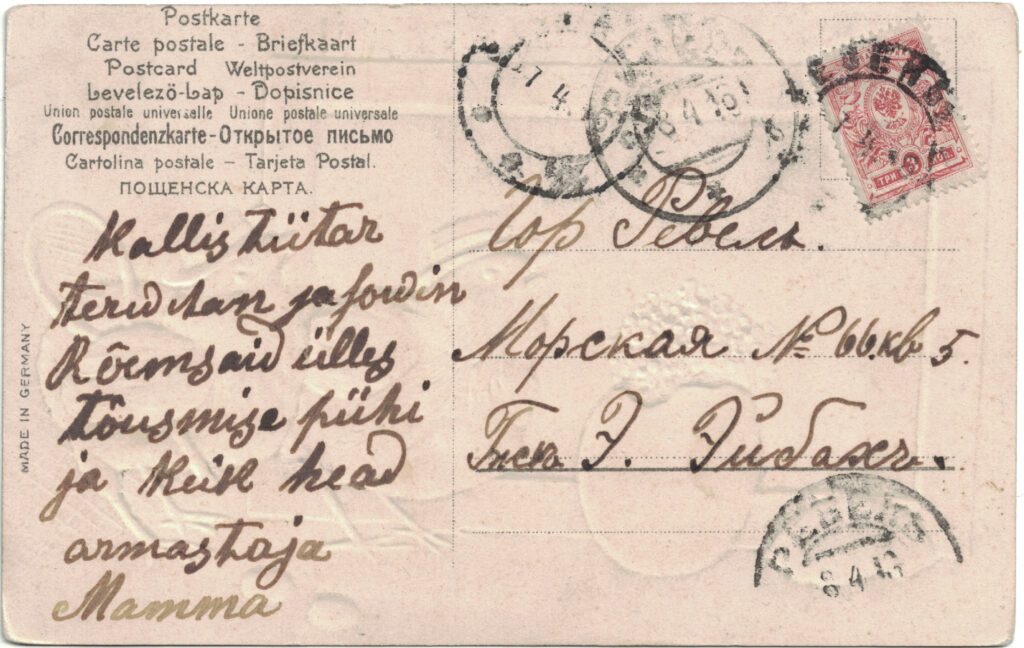 Postkarte
Carte postale - Briefkaart
Postcard Weltpostverein
Levelező-Lap - Dopisnice
Union postale universelle Unione postale universale
Correspondenzkarte - Открытое письмо
Cartolina postale - Tarjeta Postal.
ПОЩЕНСКА КАРТА.
MADE IN GERMANY
Kallis tütar
terwitan ja sowin
Rõemsaid ülles
tõusmise pühi
ja keik head
armastaja
Mamma
7.4
8.4.16
ТРИ
3
Гор Ревель.
Морская № 66 кв 5.
Э. Эйбахъ.
РЕВЕЛЬ
8.4.16